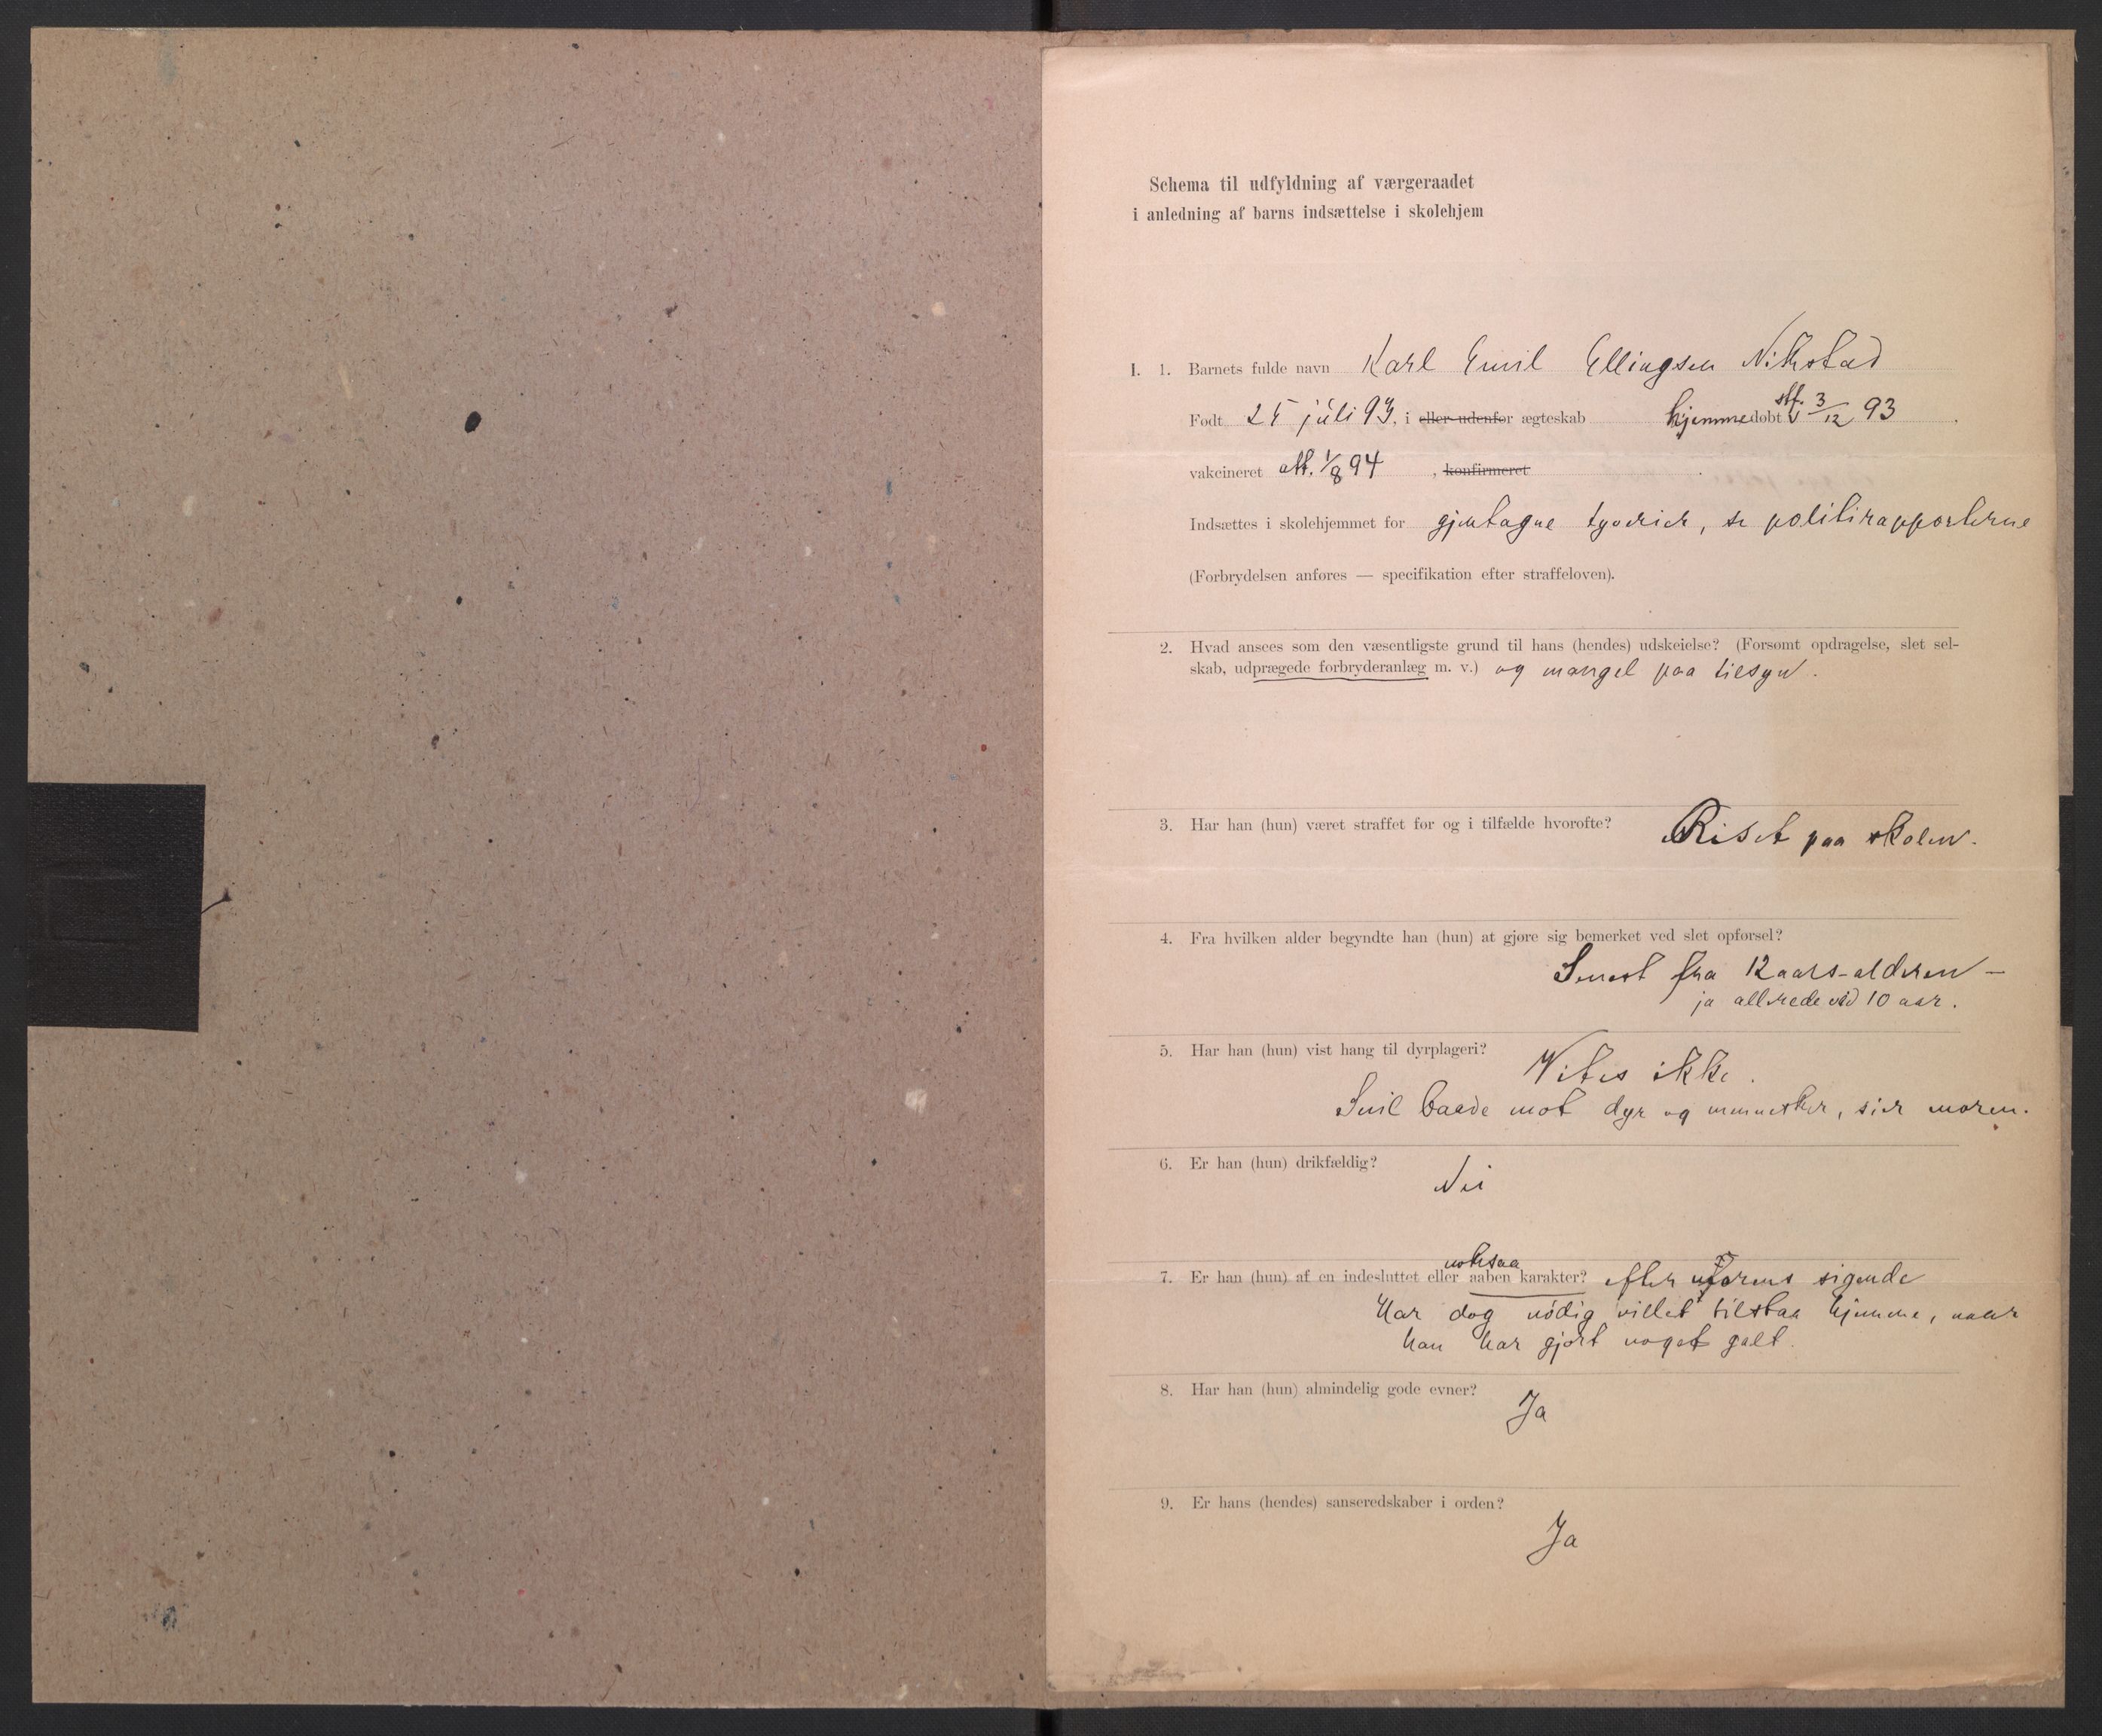 Schema til udfyldning af værgeraadet
i anledning af barns indsættelse i skolehjem
I. 1. Barnets fulde navn Karl Emil Ellingsen Nikstad
Født 25 júli 93, i eller udenfor ægteskab hjemmedøbt stf. 3/12 93
vakcineret att. 1/8 94, konfirmeret
Indsættes i skolehjemmet for gjentagne tyverier, se politirapporterne
(Forbrydelsen anføres — specifikation efter straffeloven).
2. Hvad ansees som den væsentligste grund til hans (hendes) udskeielse? (Forsømt opdragelse, slet sel-
skab, udprægede forbryderanlæg m. v.) og mangel paa tilsyn.
3. Har han (hun) været straffet før og i tilfælde hvorofte? Riset paa skolen.
4. Fra hvilken alder begyndte han (hun) at gjøre sig bemerket ved slet opførsel?
Senest fra 12 aars-alderen –
ja allerede ved 10 aar.
5. Har han (hun) vist hang til dyrplageri? Vites ikke.
Snil baade mot dyr og mennesker, sier moren.
6. Er han (hun) drikfældig?
Nei
7. Er han (hun) af en indesluttet eller noksaa aaben karakter? efter morens sigende
Har dog nødig villet tilstaa hjemme, naar
han har gjort noget galt.
8. Har han (hun) almindelig gode evner?
Ja
9. Er hans (hendes) sanseredskaber i orden?
Ja